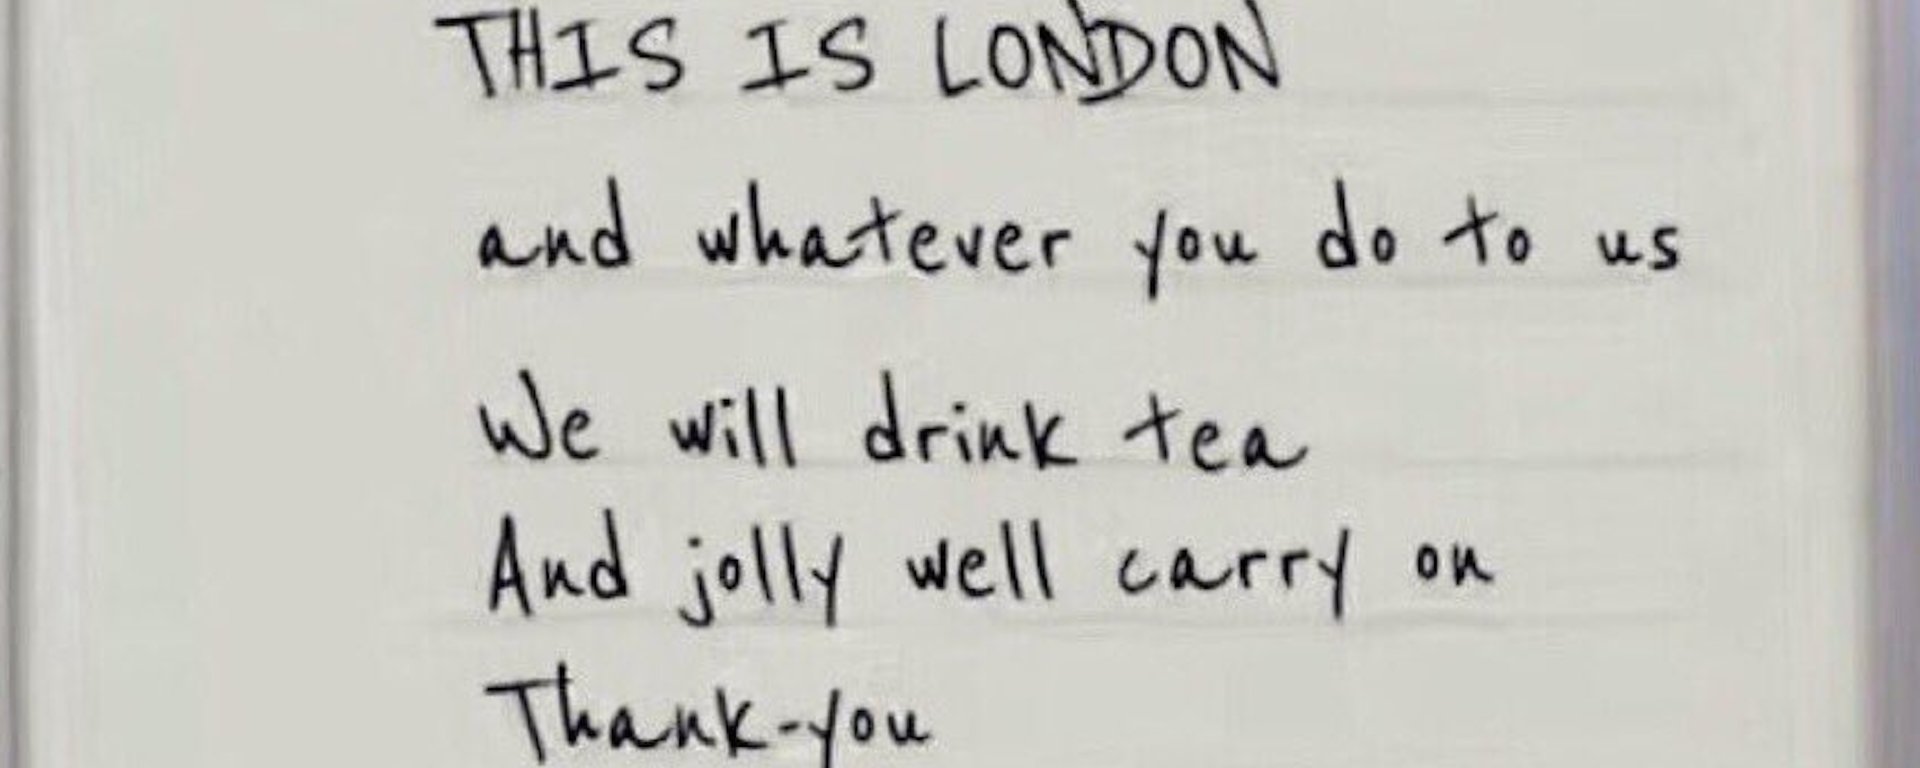 THIS IS LONDON
and whatever you do to us
We will drink tea
And jolly well carry on
Thank-you